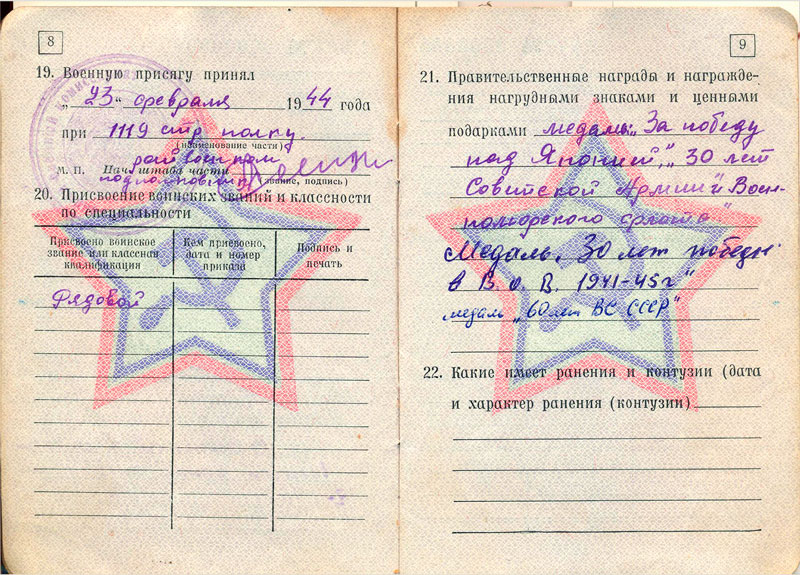 8
19. Военную присягу принял
„ 23 “ февраля 1944 года
при 1119 стр. полку.
(наименование части)
райвоенком
М. П. Нач. штаба части
подполковник
(звание, подпись)
20. Присвоение воинских званий и классности
по специальности
Присвоено воинское звание или классная квалификация
Кем присвоено, дата и номер приказа
Подпись и печать
Рядовой
9
21. Правительственные награды и награжде-
ния нагрудными знаками и ценными
подарками медаль: „За победу
над Японией", „30 лет
Советской Армии и Воен-
но-морского флота"
Медаль „30 лет победы
в В.О.В. 1941-45г"
медаль „60 лет ВС СССР"
22. Какие имеет ранения и контузии (дата
и характер ранения (контузии)